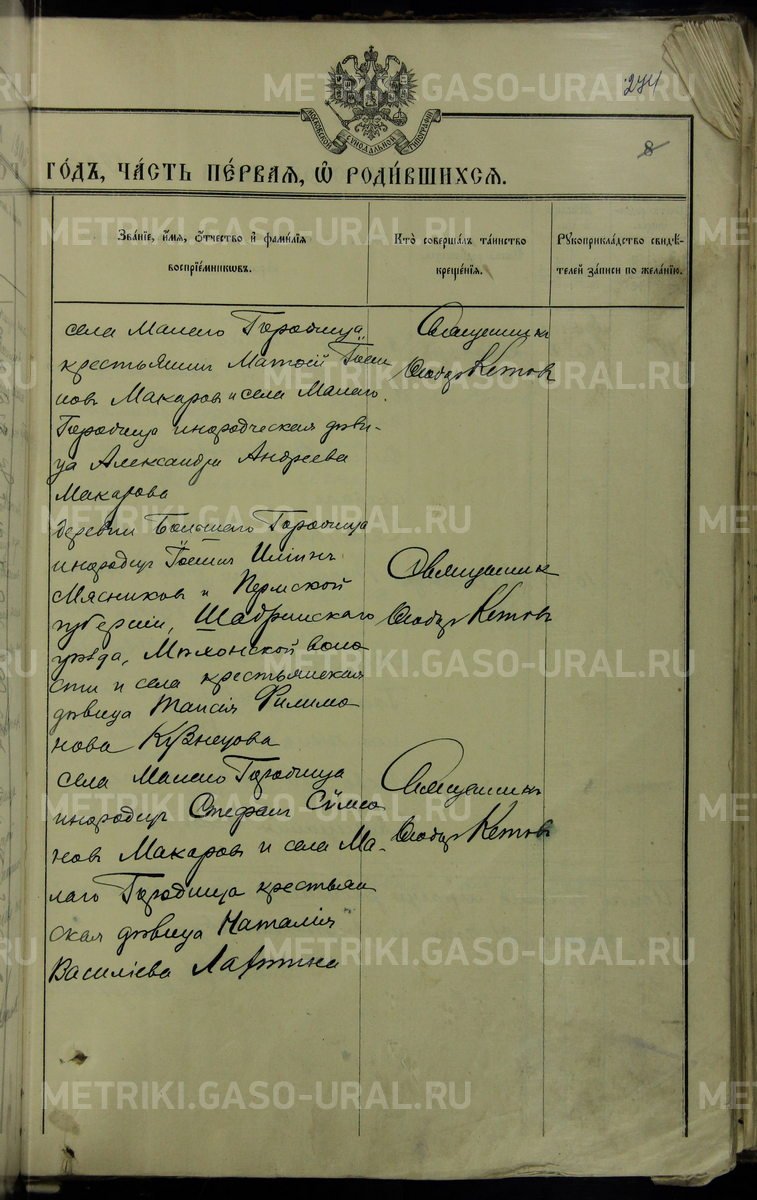 274
8
МОСКОВСКОЙ СѴНОДАЛЬНОЙ ТИПОГРАФІИ
ГО́ДЪ, ЧА́СТЬ ПЕ́РВАЯ, Ѽ РОДИ́ВШИХСЯ.
Зва́нїе, и҆́мѧ, ѻ҆́тчество и҆ фамі́лїѧ воспрїе́мникѡвъ.
Кто̀ соверша́лъ та́инство креще́нїѧ.
Рꙋкоприкла́дство свидѣ́телей за́писи по жела́нїю.
села Малаго Городища
крестьянинъ Матѳій Іоси
повъ Макаровъ и села Малаго
Городища инородческая дѣви-
ца Александра Андреева
Макарова
Священникъ
Ѳеодоръ Кетовъ
деревни Большаго Городища
инородецъ
Мясниковъ и Пермской
губерніи, Шадринскаго
уѣзда, Мѣхонской воло
сти и села крестьянская
дѣвица Таисія Филимо
нова Кузнецова
Священникъ
Ѳеодоръ Кетовъ
села Малаго Городища
инородецъ Стефанъ Сѵмео
новъ Макаровъ и села Ма-
лаго Городища крестьян
ская дѣвица Наталія
Василіева
Священникъ
Ѳеодоръ Кетовъ
METRIKI.GASO-URAL.RU